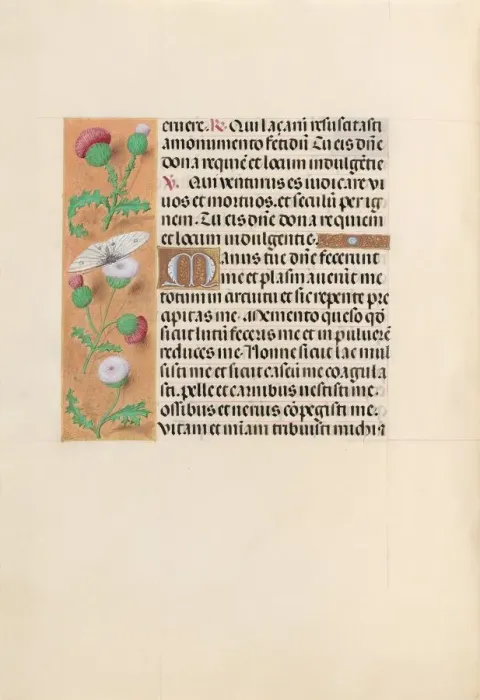 eruere. R. Qui lazarū resuscitasti
a monumento fetidū Tu eis dn̄e
dona requiē et locum indulgētie
V. Qui venturus es iudicare vi
uos et mortuos. et seculū per ig
nem. Tu eis dn̄e dona requiem
et locum indulgentie.
Manus tue dn̄e fecerunt
me et plasmauerūt me
totum in circuitu et sic repente pre
cipitas me. Memento queso qō
sicut lutū feceris me et in puluerē
reduces me. Nonne sicut lac mul
sisti me et sicut caseū me coagula
sti. pelle et carnibus uestisti me.
ossibus et neruis cōpegisti me.
vitam et mīam tribuisti michi et